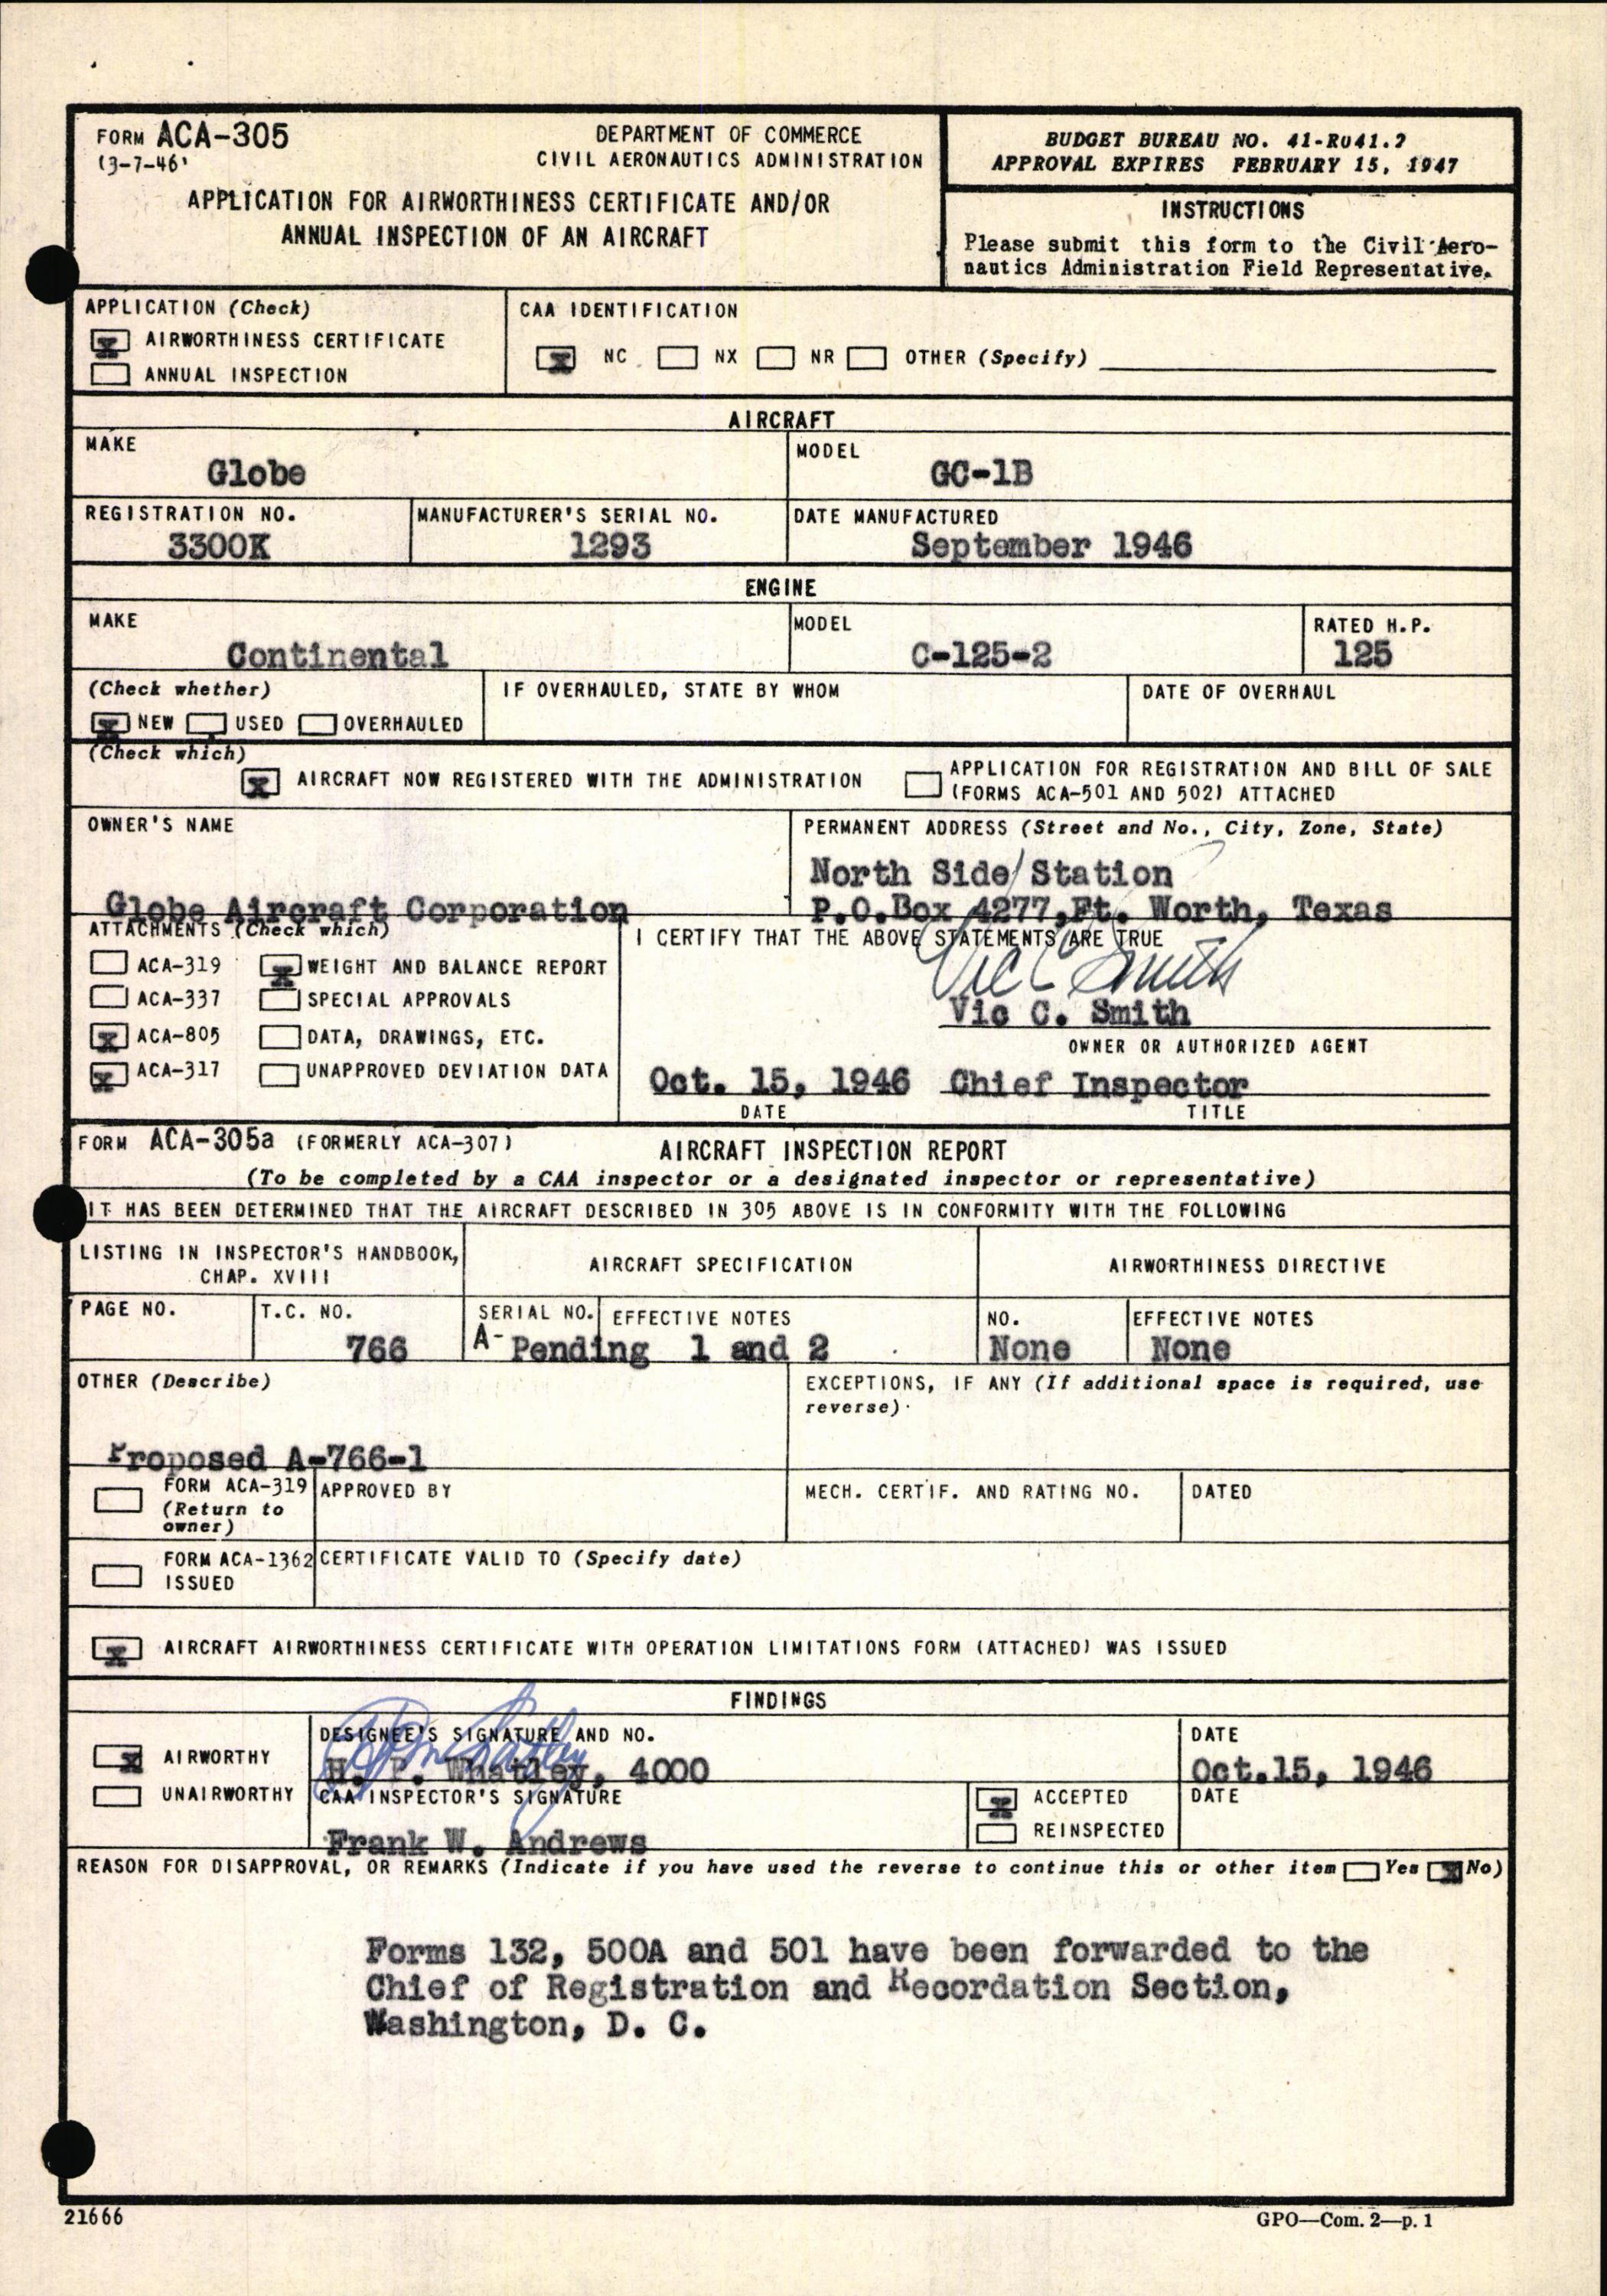 FORM ACA-305
(3-7-46)
DEPARTMENT OF COMMERCE
CIVIL AERONAUTICS ADMINISTRATION
APPLICATION FOR AIRWORTHINESS CERTIFICATE AND/OR
ANNUAL INSPECTION OF AN AIRCRAFT
BUDGET BUREAU NO. 41-R041.2
APPROVAL EXPIRES FEBRUARY 15, 1947
INSTRUCTIONS
Please submit this form to the Civil Aero-
nautics Administration Field Representative.
APPLICATION (Check)
X AIRWORTHINESS CERTIFICATE
ANNUAL INSPECTION
CAA IDENTIFICATION
X NC NX NR OTHER (Specify)
AIRCRAFT
MAKE
Globe
MODEL
GC-1B
REGISTRATION NO.
3300K
MANUFACTURER'S SERIAL NO.
1293
DATE MANUFACTURED
September 1946
ENGINE
MAKE
Continental
MODEL
C-125-2
RATED H.P.
125
(Check whether)
X NEW USED OVERHAULED
IF OVERHAULED, STATE BY WHOM
DATE OF OVERHAUL
(Check which)
X AIRCRAFT NOW REGISTERED WITH THE ADMINISTRATION
APPLICATION FOR REGISTRATION AND BILL OF SALE
(FORMS ACA-501 AND 502) ATTACHED
OWNER'S NAME
Globe Aircraft Corporation
PERMANENT ADDRESS (Street and No., City, Zone, State)
North Side Station
P.O.Box 4277,Ft. Worth, Texas
ATTACHMENTS (Check which)
ACA-319 X WEIGHT AND BALANCE REPORT
ACA-337 SPECIAL APPROVALS
X ACA-805 DATA, DRAWINGS, ETC.
X ACA-317 UNAPPROVED DEVIATION DATA
I CERTIFY THAT THE ABOVE STATEMENTS ARE TRUE
Vic C Smith
Vic C. Smith
OWNER OR AUTHORIZED AGENT
Oct. 15, 1946 Chief Inspector
DATE TITLE
FORM ACA-305a (FORMERLY ACA-307)
AIRCRAFT INSPECTION REPORT
(To be completed by a CAA inspector or a designated inspector or representative)
IT HAS BEEN DETERMINED THAT THE AIRCRAFT DESCRIBED IN 305 ABOVE IS IN CONFORMITY WITH THE FOLLOWING
LISTING IN INSPECTOR'S HANDBOOK,
CHAP. XVIII
AIRCRAFT SPECIFICATION
AIRWORTHINESS DIRECTIVE
PAGE NO.
T.C. NO.
766
SERIAL NO.
A- Pending
EFFECTIVE NOTES
1 and 2
NO.
None
EFFECTIVE NOTES
None
OTHER (Describe)
Proposed A-766-1
EXCEPTIONS, IF ANY (If additional space is required, use
reverse)
FORM ACA-319
(Return to
owner)
APPROVED BY
MECH. CERTIF. AND RATING NO.
DATED
FORM ACA-1362
ISSUED
CERTIFICATE VALID TO (Specify date)
X AIRCRAFT AIRWORTHINESS CERTIFICATE WITH OPERATION LIMITATIONS FORM (ATTACHED) WAS ISSUED
FINDINGS
X AIRWORTHY
UNAIRWORTHY
DESIGNEE'S SIGNATURE AND NO.
H P Whatley
H. P. Whatley, 4000
DATE
Oct.15, 1946
CAA INSPECTOR'S SIGNATURE
Frank W. Andrews
X ACCEPTED
REINSPECTED
DATE
REASON FOR DISAPPROVAL, OR REMARKS (Indicate if you have used the reverse to continue this or other item Yes X No)
Forms 132, 500A and 501 have been forwarded to the
Chief of Registration and Recordation Section,
Washington, D. C.
21666
GPO—Com. 2—p. 1